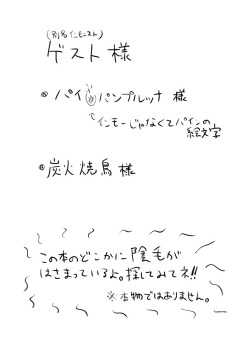 (別名インモニスト)
ゲスト様
パイ🍍パンプルッナ 様
インモーじゃなくてパインの
絵文字
炭火焼鳥様
この本のどこかに陰毛が
はさまっているよ。探してみてネ!!
※本物ではありません。